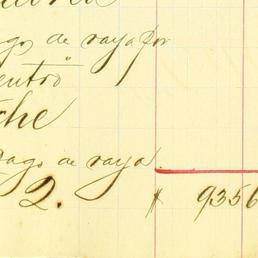 gos de raya por
entró"
che
Pago de raya
2. $ 9356